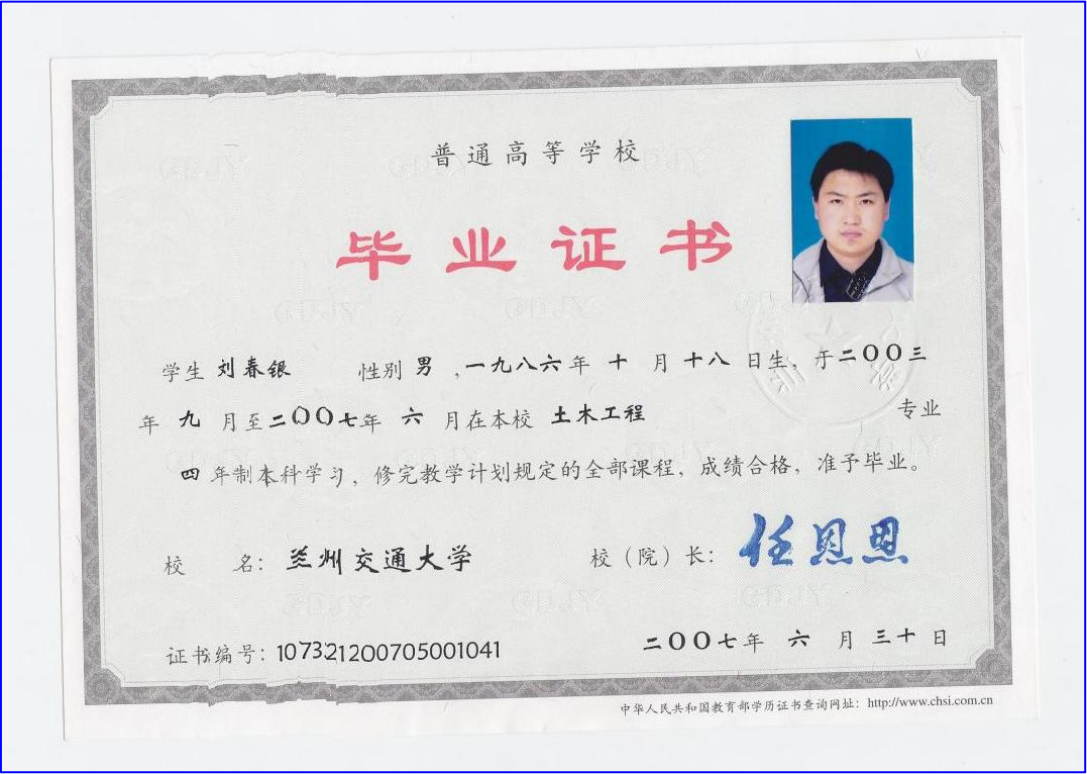 普通高等学校
毕业证书
学生 刘春银 性别 男 ,一九八六年 十 月 十八 日生, 于二〇〇三
年 九 月至二〇〇七年 六 月在本校 土木工程 专业
四 年制本科学习, 修完教学计划规定的全部课程, 成绩合格, 准予毕业。
校 名: 兰州交通大学 校(院)长: 任恩恩
证书编号: 107321200705001041 二〇〇七年 六 月 三十 日
中华人民共和国教育部学历证书查询网址: http://www.chsi.com.cn